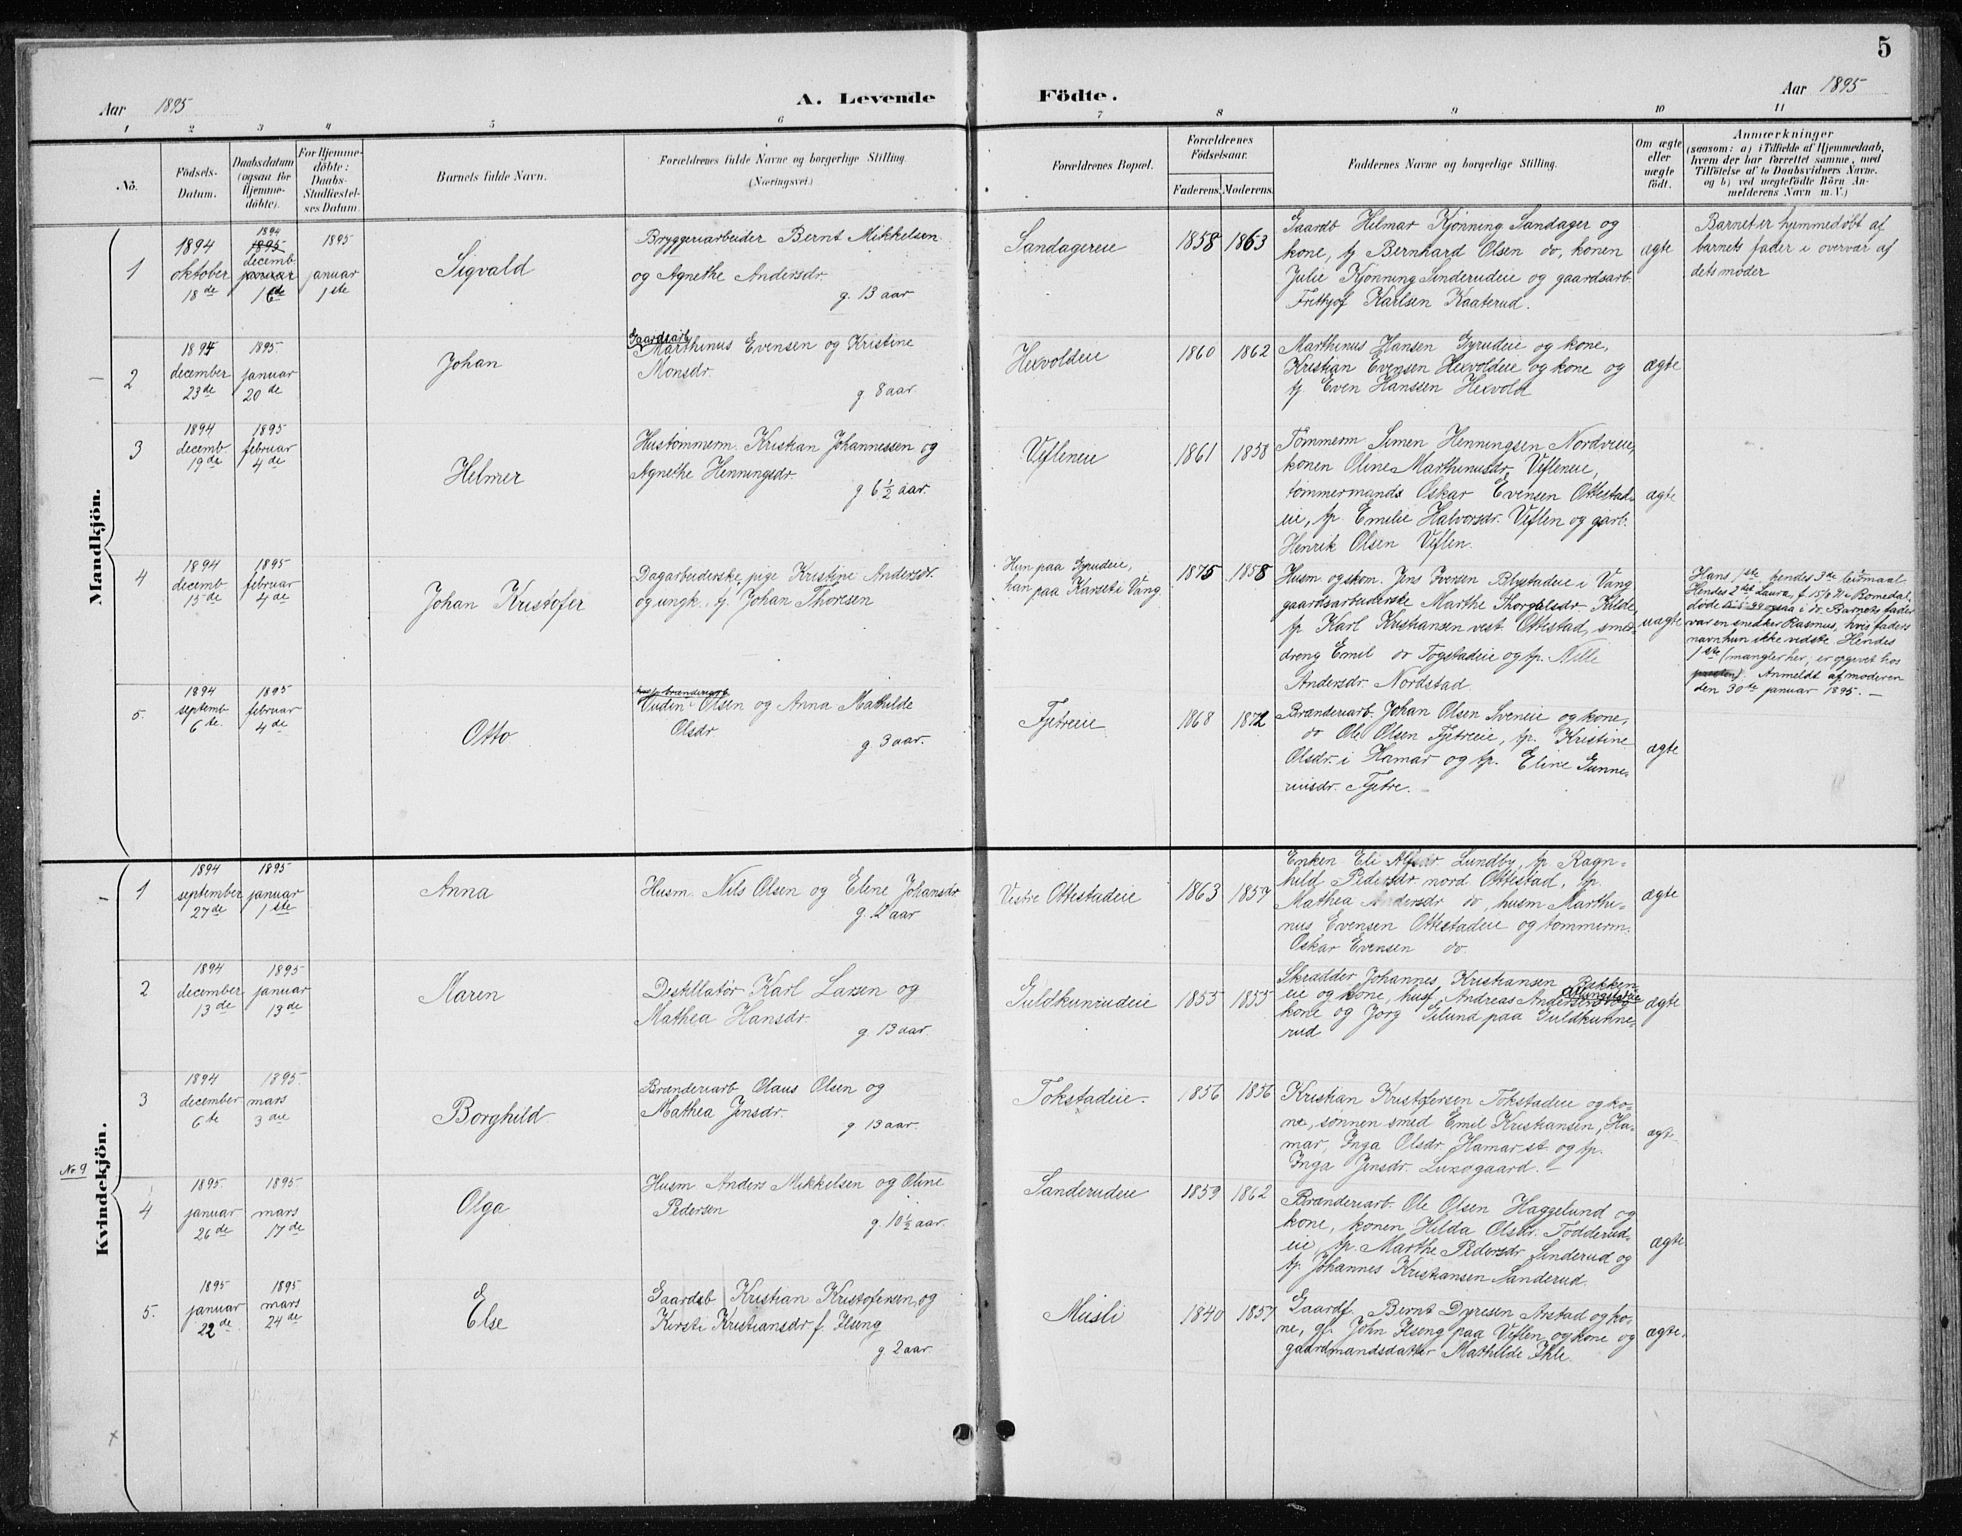 5
Aar 1895
A. Levende Födte.
Aar 1895
1 2 3 4 5 6 7 8 9 10 11
No.
Födsels-
Datum.
Daabsdatum
(ogsaa for
Hjemme-
döbte).
For Hjemme-
döbte:
Daabs-
Stadfæstel-
ses Datum.
Barnets fulde Navn.
Forældrenes fulde Navne og borgerlige Stilling.
(Næringsvei.)
Forældrenes Bopæl.
Forældrenes
Födselsaar.
Faderens. Moderens.
Faddernes Navne og borgerlige Stilling.
Om ægte
eller
uægte
födt.
Anmærkninger
(saasom: a) i Tilfælde af Hjemmedaab,
hvem der har forrettet samme, med
Tilföielse af to Daabsvidners Navne.
og b) ved uægtefödte Börn An-
melderens Navn m. V.)
Mandkjön.
1
1894
oktober
18de
1894
1895
decemb.
januar
16de
1895
januar
1ste
Sigvald
Bryggeriarbeider Bernt Mikkelsen
og Agnethe Andersdr.
g. 13 aar
Sandagereie
1858 1863
Gaardb Helmar Kjønning Sandager og
kone, tj Bernhard Olsen do, konen
Julie Kjønning Sinderudeie og gaardsarb.
Frithjof Karlsen Kaaterud.
ægte
Barnet er hjemmedøbt af
barnets fader i overvær af
dets moder
2
1894
december
23de
1895.
januar
20de
Johan
Gaardsarb
Marthinus Evensen og Kristine
Monsdr.
g. 8 aar.
Hexvoldeie
1860 1862
Marthinus Hansen Gyrudeie og kone,
Kristian Evensen Hexvoldeie og kone og
tj Even Hanssen Hexvold
ægte
3
1894
decemb.
19de
1895
februar
4de
Helmer
Hustømmerm. Kristian Johannessen og
Agnethe Henningsdr.
g 6 ½ aar.
Vefleneie
1861 1858
Tømmerm Simen Henningsen Nordvieie,
konen Oline Marthinusdr. Vefleneie,
tømmermands Oskar Evensen Ottestad-
eie, tp. Emilie Halvorsdr. Veflen og garb.
Henrik Olsen Veflen.
ægte
4
1894
decemb.
15de
1895
februar
4de
Johan Kristofer
Dagarbeiderske, pige Kristine Andersdr.
og ungk. tj. Johan Thoresen
Hun paa Gyrudeie,
han paa Karset i Vang
1875 1858
Husm og skom. Jens Iversen Blystadeie i Vang
gaardsarbeiderske Marthe Kilde,
tp Karl Kristiansen vest. Ottestad, smed-
dreng Emil do Togstadeie og tp. Nille
Andersdr. Nordstad.
uægte
Hans 1ste hendes 3die leiermaal.
Hendes 2det, Laura, f. i Romedal,
døde ogsaa i do. Barnets fader
var en snedker Rasmus, hvis faders
navn hun ikke vidste. Hendes
1ste (mangler her, er opgivet hos
Anmeldt af moderen
den 30te januar 1895. —
5.
1894
septemb
6te
1895
februar
4de
Otto
brænderiarb
Olsen og Anna Mathilde
Olsdr
g 3 aar.
Fjetreeie
1868 1872
Brænderiarb. Johan Olsen Sveneie og kone,
do Ole Olsen Fjetreie, tp. Kristine
Olsdr. i Hamar og tp. Eline Gunne-
riusdr. Fjetre. —
ægte
Kvindekjön.
1
1894
september
27de
1895.
januar
1ste
Anna
Husm. Nils Olsen og Eline Johansdr
g. 12 aar
Vestre Ottestadeie
1863 1857
Enken Eli Lundby, tp. Ragn-
hild Pedersdr nord Ottestad, tp.
Mathea Andersdr do, husm Marthi-
nus Evensen Ottestadeie og tømmerm.
Oskar Evensen do
ægte
2
1894
december
13de
1895
januar
13de
Karen
Destillatør Karl Larsen og
Mathea Hansdr.
g. 13 aar.
Guldkunrudeie
1855 1855
Skrædder Johannes Kristiansen Bekken-
eie og kone, husf. Andreas Andersen og
kone og Jørg Eilund paa Guldkunne-
rud
ægte
3
1894
december
6te
1895.
mars
3die
Borghild
Brænderiarb Olaus Olsen og
Mathea Jensdr.
g 13 aar.
Tokstadeie.
1856 1856
Kristian Kristofersen Tokstadeie og ko-
ne, sønnen smed Emil Kristiansen, Ha-
mar, Inga Olsdr, Hamar st. og tp.
Inga Jensdr. Luxogaard. —
ægte
No 9
4
1895.
januar
26de
1895.
mars
17de
Olga
Husm. Anders Mikkelsen og Oline
Pedersen
g. 10 ½ aar.
Sanderudeie
1859 1862
Brænderiarb. Ole Olsen Haggelund og
kone, konen Hilda Olsdr. Todderud-
eie, tp. Marthe Pedersdr Sinderud og
tj. Johannes Kristiansen Sanderud.
ægte
5.
1895
januar
22de
1895
mars
24de
Else
Gaardsb Kristian Kristofersen og
Kirsti Kristiansdr f. Ilseng
g 2 aar.
Misli
1840 1857
Gaardf. Bernt Dyresen Arstad og ko-
ne, gf. John Ilseng paa Veflen og kone og
gaardmandsdatter Mathilde Ihle.
ægte.